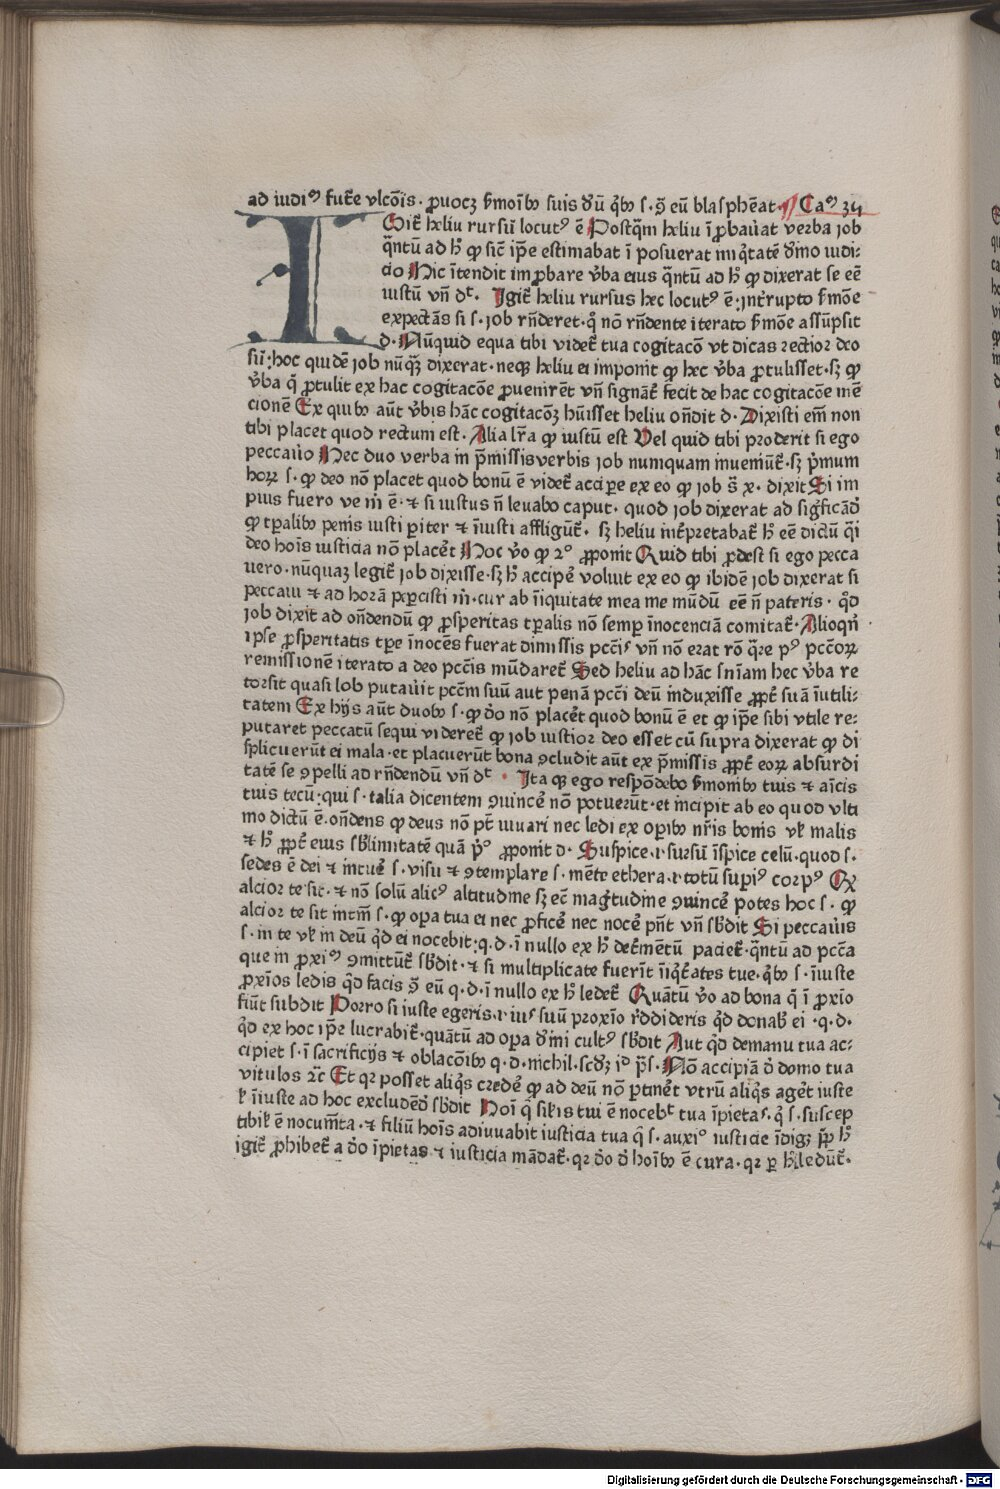 ad iudiꝰ fut̄e vlcōis · ꝓuocꝫ ẜmoībꝰ suis ꝺ̄ū q̄bꝰ s · ꝯ̄ eū blasphēat · ¶ Caꝫ 34
IGit̄ heliu rursū locutꝰ ē Postq̄m heliu īꝓbau̇at verba iob
q̄ntū ad ħ ꝙ sic̄ ip̄e estimabat ī posuerat miq̄tatē ꝺ̄mo iudi:
cio Hic ītendit imꝓbare v̄ba eius q̄ntū ad ħ ꝙ dixerat se eē
iustū vn̄ dᵗ · Igit̄ heliu rursus hec locutꝰ ē · int̄rupto ẜmōe
expectās si s · iob rn̄deret · q̇ nō rn̄dente iterato ẜmōe assūpsit
d · Nūquid equa tibi videt̄ tua cogitacō vt dicas rectior deo
sū: hoc quidē iob nūq̄ꝫ dixerat · neqꝫ heliu ei imponit ꝙ hec v̄ba ꝓtulisset · sꝫ ꝙ
v̄ba q̄ ꝓtulit ex hac cogitacōe ꝓuenirēt vn̄ signāt̄ fecit de hac cogitacōe mē
cionē Ex quibꝰ aūt v̄bis hāc cogitacōꝫ hūisset heliu on̄dit d · Dixisti em̄ non
tibi placet quod rectum est · Alia lr̄a ꝙ iustū est Vel quid tibi proderit si ego
peccauo Hec duo verba in p̄missis verbis iob numquam inuemūt̄ · sꝫ p̄mum
hoꝝ s · ꝙ deo nō placet quod bonū ē videt̄ accipe ex eo ꝙ iob s̄ x · dixit Si im
pius fuero ve m̄ ē · ⁊ si iustus n̄ leuabo caput · quod iob dixerat ad sigficād̄
ꝙ tꝑalibꝰ penis iusti ꝑiter ⁊ īiusti affligūt̄ · sꝫ heliu int̄pretabat̄ ħ eē dictū q̄i
deo hoīs iusticia nō placet̄ Hoc v̄o ꝙ 2º ꝓponit Quid tibi ꝓdest si ego pecca
uero · nūquaꝫ legit̄ iob dixisse · sꝫ ħ accipe̅ voluit ex eo ꝙ ibidē iob dixerat si
peccaui ⁊ ad horā peꝑcisti m̄ · cur ab īiquitate mea me mūdū eē n̄ pateris · q̄d
iob dixit ad on̄dendū ꝙ ꝓsperitas tꝑalis nō semꝑ īnocenciā comitat̄ · Alioqn̄
ipse ꝓsperitatis tꝑe īnocēs fuerat dimissis pcc̄is vn̄ nō erat rō q̄re pꝰ pcc̄oꝝ
remissionē iterato a deo pcc̄is mūdaret̄ Sed heliu ad hāc sn̄iam hec v̄ba re
torsit quasi Iob putau̇it pcc̄m suū aut penā pcc̄i deū induxisse ꝓpt̄ suā īutili:
tatem Ex hijs aūt duobꝰ s · ꝙ ꝺ̄o nō placet̄ quod bonū ē et ꝙ ip̄e sibi vtile re:
putaret peccatū sequi videret̄ ꝙ iob iustior deo esset cū supra dixerat ꝙ di
splicuerūt ei mala · et placuerūt bona ꝯcludit aūt ex p̄missis ꝓpt̄ eoꝝ absurdi
tatē se ꝯpelli ad rn̄dendū vn̄ dᵗ · Ita qꝫ ego respōdebo ẜmonibꝰ tuis ⁊ aīcis
tuis tecū: qui s · talia dicentem ꝯuince̅ nō potuerūt · et incipit ab eo quod vlti
mo dictū ē · on̄dens ꝙ deus nō pt̄ iuuari nec ledi ex oꝑibꝰ nr̄is bonis vꝉ malis
⁊ ħ ꝓpt̄ eius sb̄limitatē quā p̄º ꝓponit d · Suspice · ⁊ sursū īspice celū · quod s ·
sedes ē dei ⁊ intue̅ s · visu ⁊ ꝯtemplare s · mēte ethera · ⁊ totū suꝑiꝰ corpꝰ Qꝫ
alcior te sit · ⁊ nō solū alicꝰ altitudine sꝫ ec̄ magt̄udine ꝯuince̅ potes hoc s · ꝙ
alcior te sit intm̄ s · ꝙ oꝑa tua ei nec ꝓfice̅ nec noce̅ pn̄t vn̄ sb̄dit Si peccau̇is
s · in te vꝉ in deū q̄d ei nocebit: q · d · ī nullo ex ħ det̄mētū paciet̄ · q̄ntū ad pcc̄a
que in ꝓxiꝰ ꝯmittūt̄ sb̄dit · ⁊ si multiplicate fuerīt īiq̄tates tue · q̄bꝰ s · īiuste
ꝓxīos ledis q̄d facis ꝯ̄ eū q · d · ī nullo ex ħ ledet̄ Quātū v̄o ad bona q̄ ī ꝓxīo
fiūt subdit Porro si iuste egeris · ⁊ iuˢ suū proxīo r̄ddideris q̄d donab̄ ei · q · d ·
q̄d ex hoc ip̄e lucrabit̄ · quātū ad oꝑa ꝺ̄ini cultꝰ sb̄dit Aut q̄d de manu tua ac:
cipiet s · ī sacrificijs ⁊ oblacōibꝰ q · d · nichil · scd̄ꝫ iº p̄s · Nō accipiā ꝺ̄ domo tua
vitulos ⁊c̄ Et qꝛ posset aliq̄s crede̅ ꝙ ad deū nō ꝑtinet̄ vtrū aliq̄s aget̄ iuste
ꝉ īiuste ad hoc excludēd̄ sb̄dit Hoī q̄ siꝉis tui ē nocebᵗ tua īpietas · q̄ s · suscep
tibiꝉ ē nocumīta · ⁊ filiū hoīs adiuuabit iusticia tua q̄ s · auxiº iusticie īdigꝫ ꝓp̄ ħ
igit̄ ꝓhibet̄ a ꝺ̄o īpietas ⁊ iusticia mādat̄ · qꝛ ꝺ̄o ꝺ̄ hoībꝰ ē cura · qꝛ ꝑ ħ ledūt̄ ·
Digitalisierung gefördert durch die Deutsche Forschungsgemeinschaft · DFG